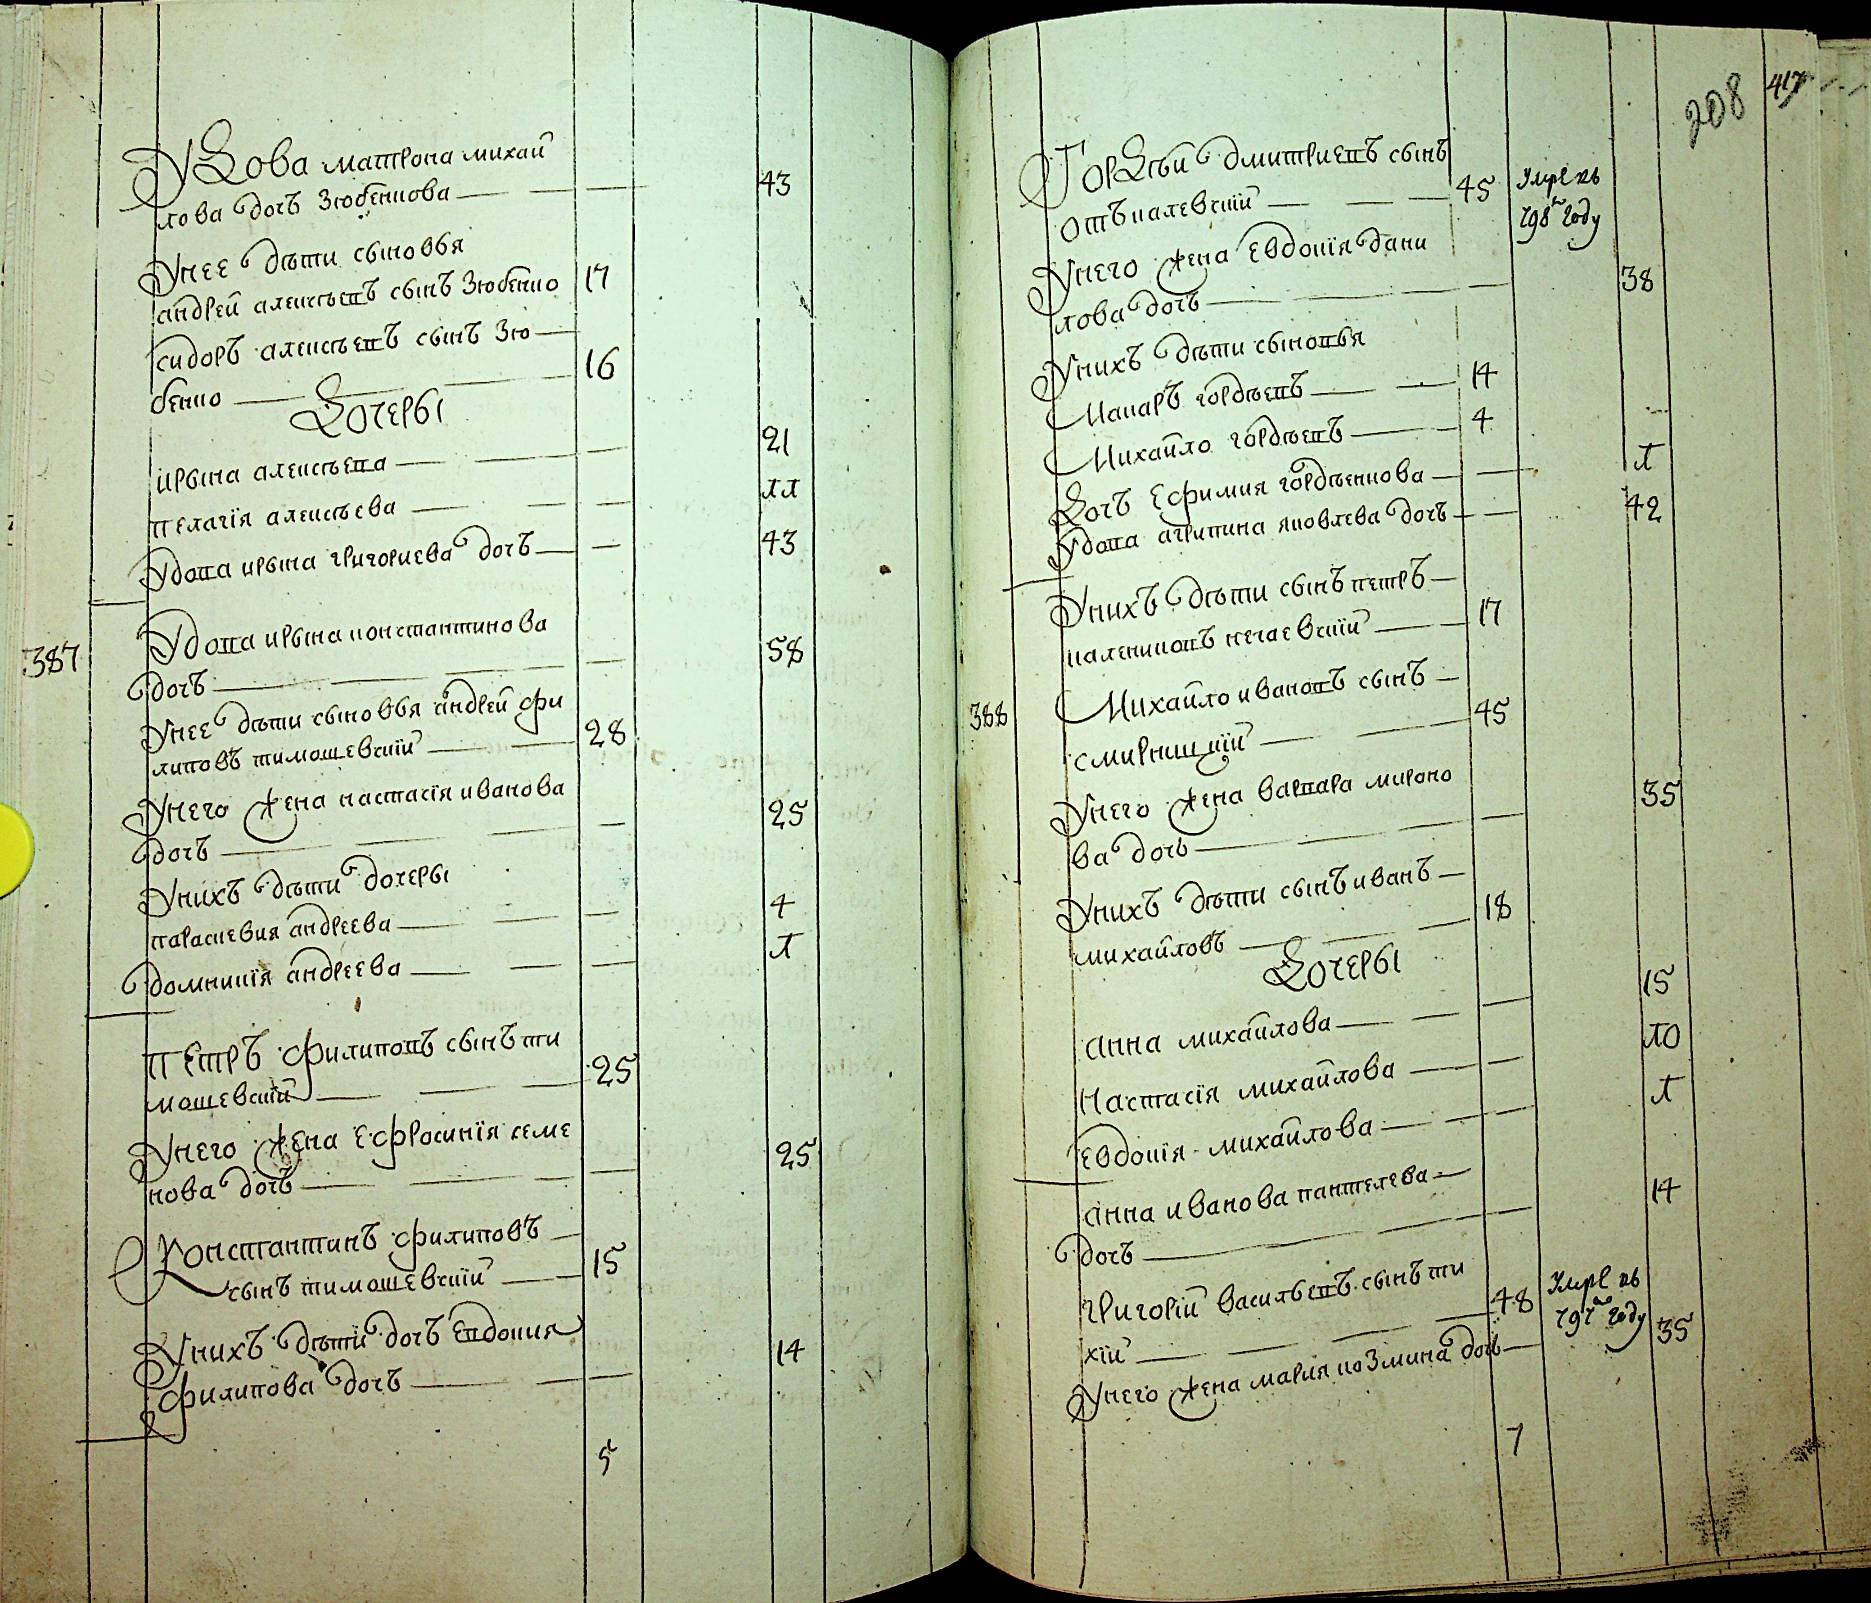 Удова матрона михаи
лова дочъ Зюбенкова 43
Унее дѣти сыновья
андрей алексѣевъ сынъ Зюбенко 17
сидоръ алексѣевъ сынъ Зю
бенко 16
Дочеры
ирына алексѣева 21
пелагія алексѣева 11
Удова ирына григориева дочъ 43
387
Удова ирына константинова
дочъ 58
Унее дѣти сыновья андрей фи
липовъ тимошевскій 28
Унего жена настасія иванова
дочъ 25
Унихъ дѣти дочеры
параскевия андреева 4
домникія андреева 1
петръ филиповъ сынъ ти
мошевскій 25
Унего жена ефросинія семе
нова дочъ 25
Константинъ филиповъ
сынъ тимошевскій 15
Унихъ дѣти дочъ евдокия
филипова дочъ 14
5
208 417
Гордѣй дмитриевъ сынъ
Отъкалевскій 45 Умре въ
798мъ году
Унего жена Евдокія дани
лова дочъ 38
Унихъ дѣти сыновья
Макаръ гордѣевъ 14
Михайло гордѣевъ 4
Дочъ Ефимия гордѣенкова 1
Удова агрипина яковлева дочъ 42
Унихъ дѣти сынъ петръ
калениковъ нечаевскій 17
388
Михайло ивановъ сынъ
смирницкій 45
Унего жена варвара мироно
ва дочъ 35
Унихъ дѣти сынъ иванъ
михайловъ 18
Дочеры
анна михайлова 15
Настасія михайлова 10
евдокія михайлова 1
анна иванова пантелева
дочъ 14
григорій васильевъ сынъ ти
хій 48 Умре въ
797мъ году
Унего жена мария козмина дочъ 35
7